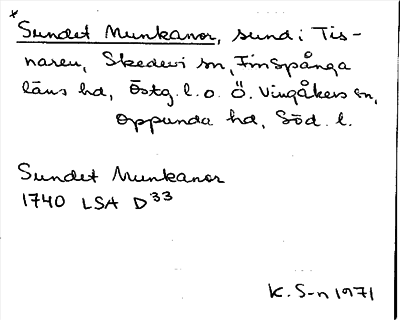 * Sundet Munkanor, sund i Tis-
naren, Skedevi sn, Finspånga
läns hd, Östg. l. o. Ö. Vingåkers sn,
Oppunda hd, Söd. l.
Sundet Munkanor
1740 LSA D 33
K. S-n 1971